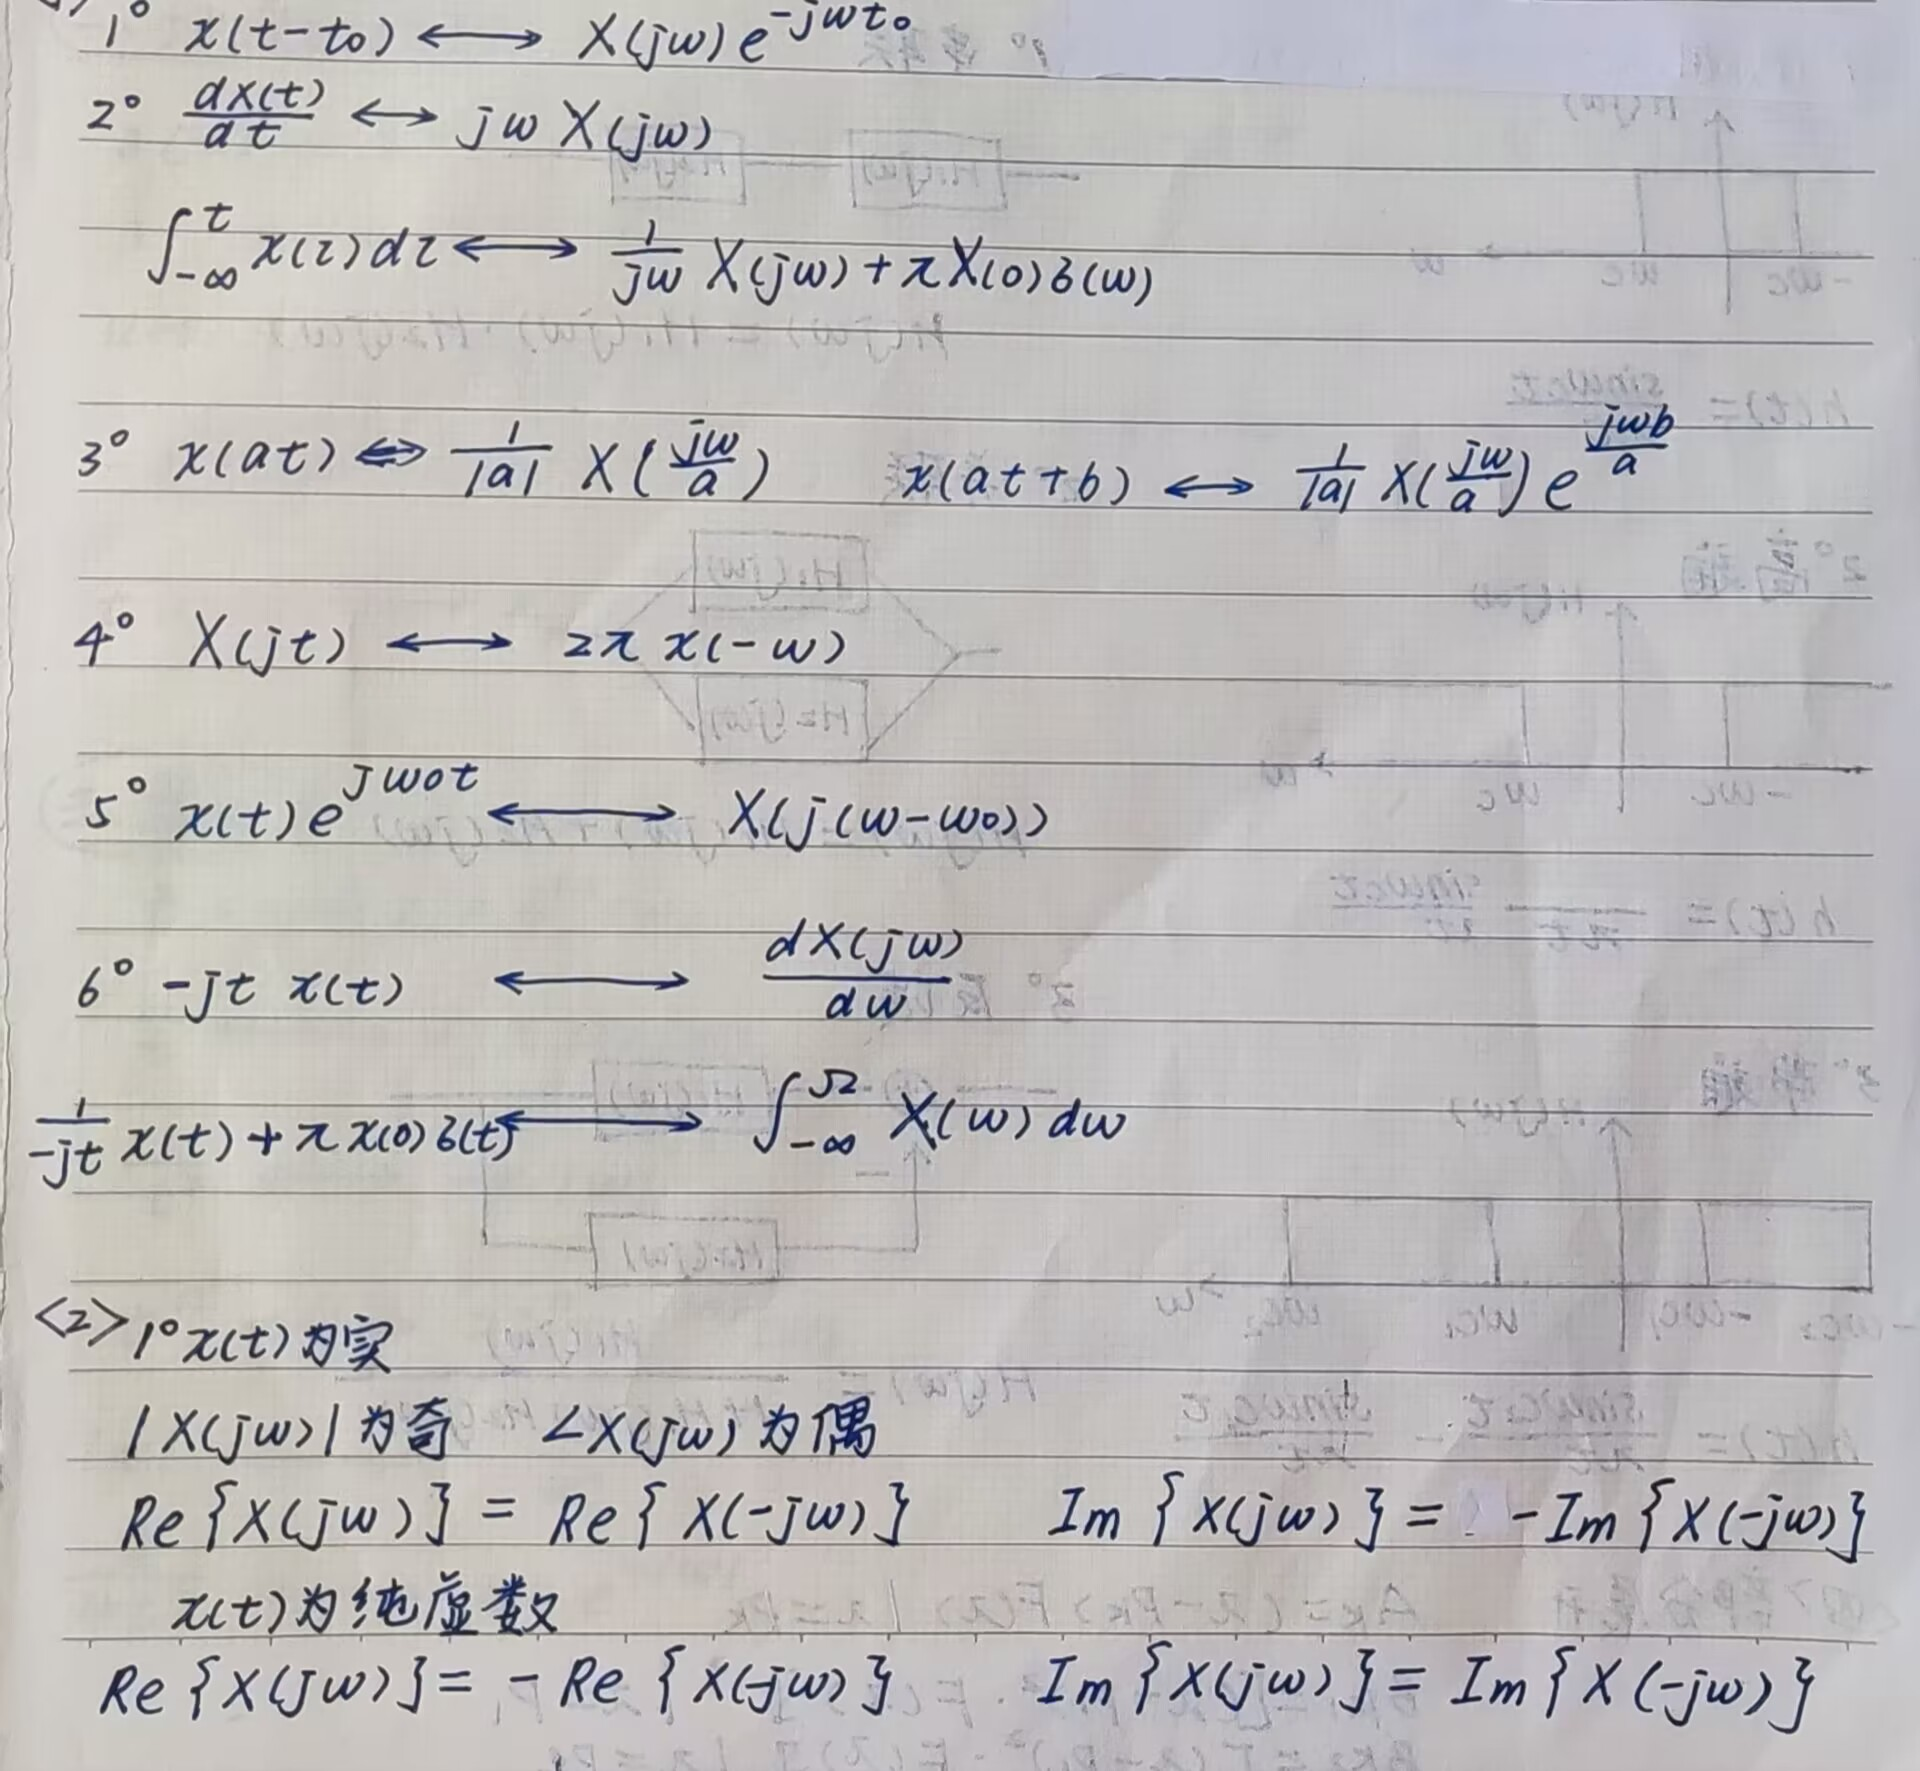 1° x(t-t₀) ⟷ X(jω)e^{-jωt₀}
2° dX(t)/dt ⟷ jωX(jω)
∫_{-∞}^{t} x(τ)dτ ⟷ 1/jω X(jω)+πX(0)δ(ω)
3° x(at) ⟺ 1/|a| X(jω/a) x(at+b) ⟷ 1/|a| X(jω/a)e^{jωb/a}
4° X(jt) ⟷ 2π x(-ω)
5° x(t)e^{jω₀t} ⟷ X(j(ω-ω₀))
6° -jt x(t) ⟷ dX(jω)/dω
1/-jt x(t)+πx(0)δ(t) ⟷ ∫_{-∞}^{Ω} X(ω)dω
<2> 1° x(t)为实
|X(jω)|为奇 ∠X(jω)为偶
Re{X(jω)} = Re{X(-jω)} Im{X(jω)} = -Im{X(-jω)}
x(t)为纯虚数
Re{X(jω)} = -Re{X(-jω)} Im{X(jω)} = Im{X(-jω)}